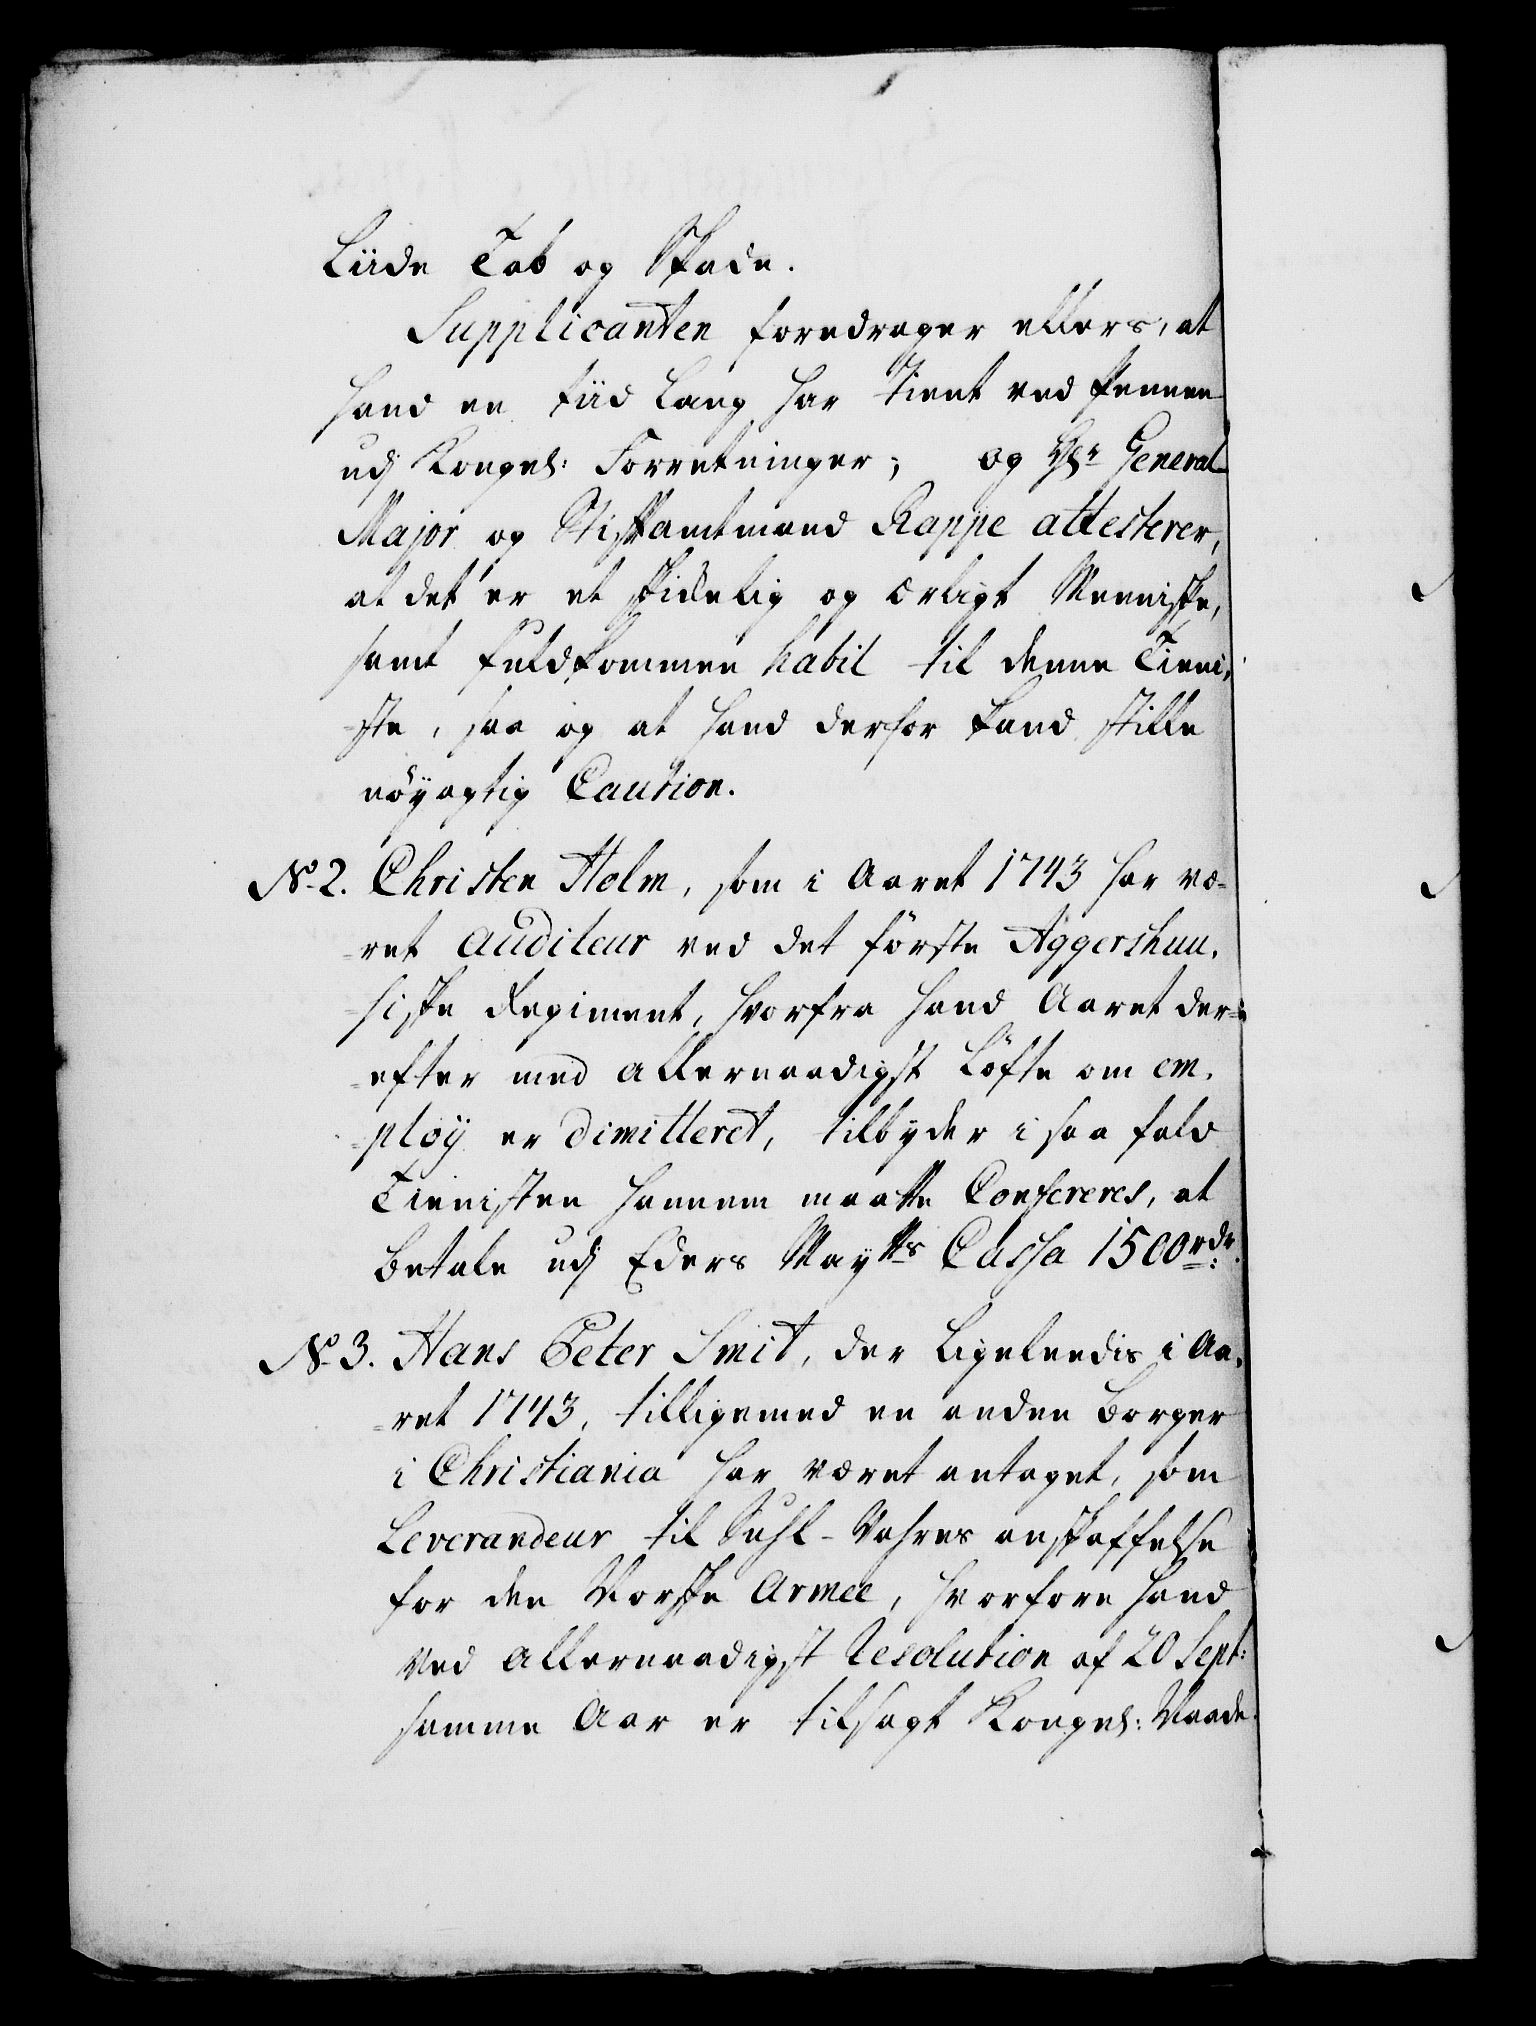 Liide Tab og Skade.
Supplicanten foredrager ellers, at
hand en tiid lang har tient ved Pennen
udj Kongel: Forretninger; og Hr. General-
Major og Stiftamtmand Rappe attesterer,
at det er et skickelig og ærligt Menniske,
samt fuldkommen habil til denne Tieni-
-ste, saa og at hand derfor kand stille
nöyagtig Caution.
No. 2. Christen Holm, som i Aaret 1743 har væ-
-ret Auditeur ved det förste Aggershuu-
-siske Regiment, hvorfra hand Aaret der-
-efter med allernaadigst Löfte om em-
-ploÿ er dimitteret, tilbyder i saa fald
Tienisten hannem maatte Confereres, at
betale udj Eders Maytts Cassa 1500 rdr:
No. 3. Hans Peter Smit, der ligeleedis i Aa-
-ret 1743, tilligemed en anden Borger
i Christiania har været antaget, som
Leverandeur til Suhl-Vahres anskaffelse
for den Norske Armee, hvorfore hand
ved allernaadigst Resolution af 20 Sept:
samme Aar er tilsagt Kongel: Naade.